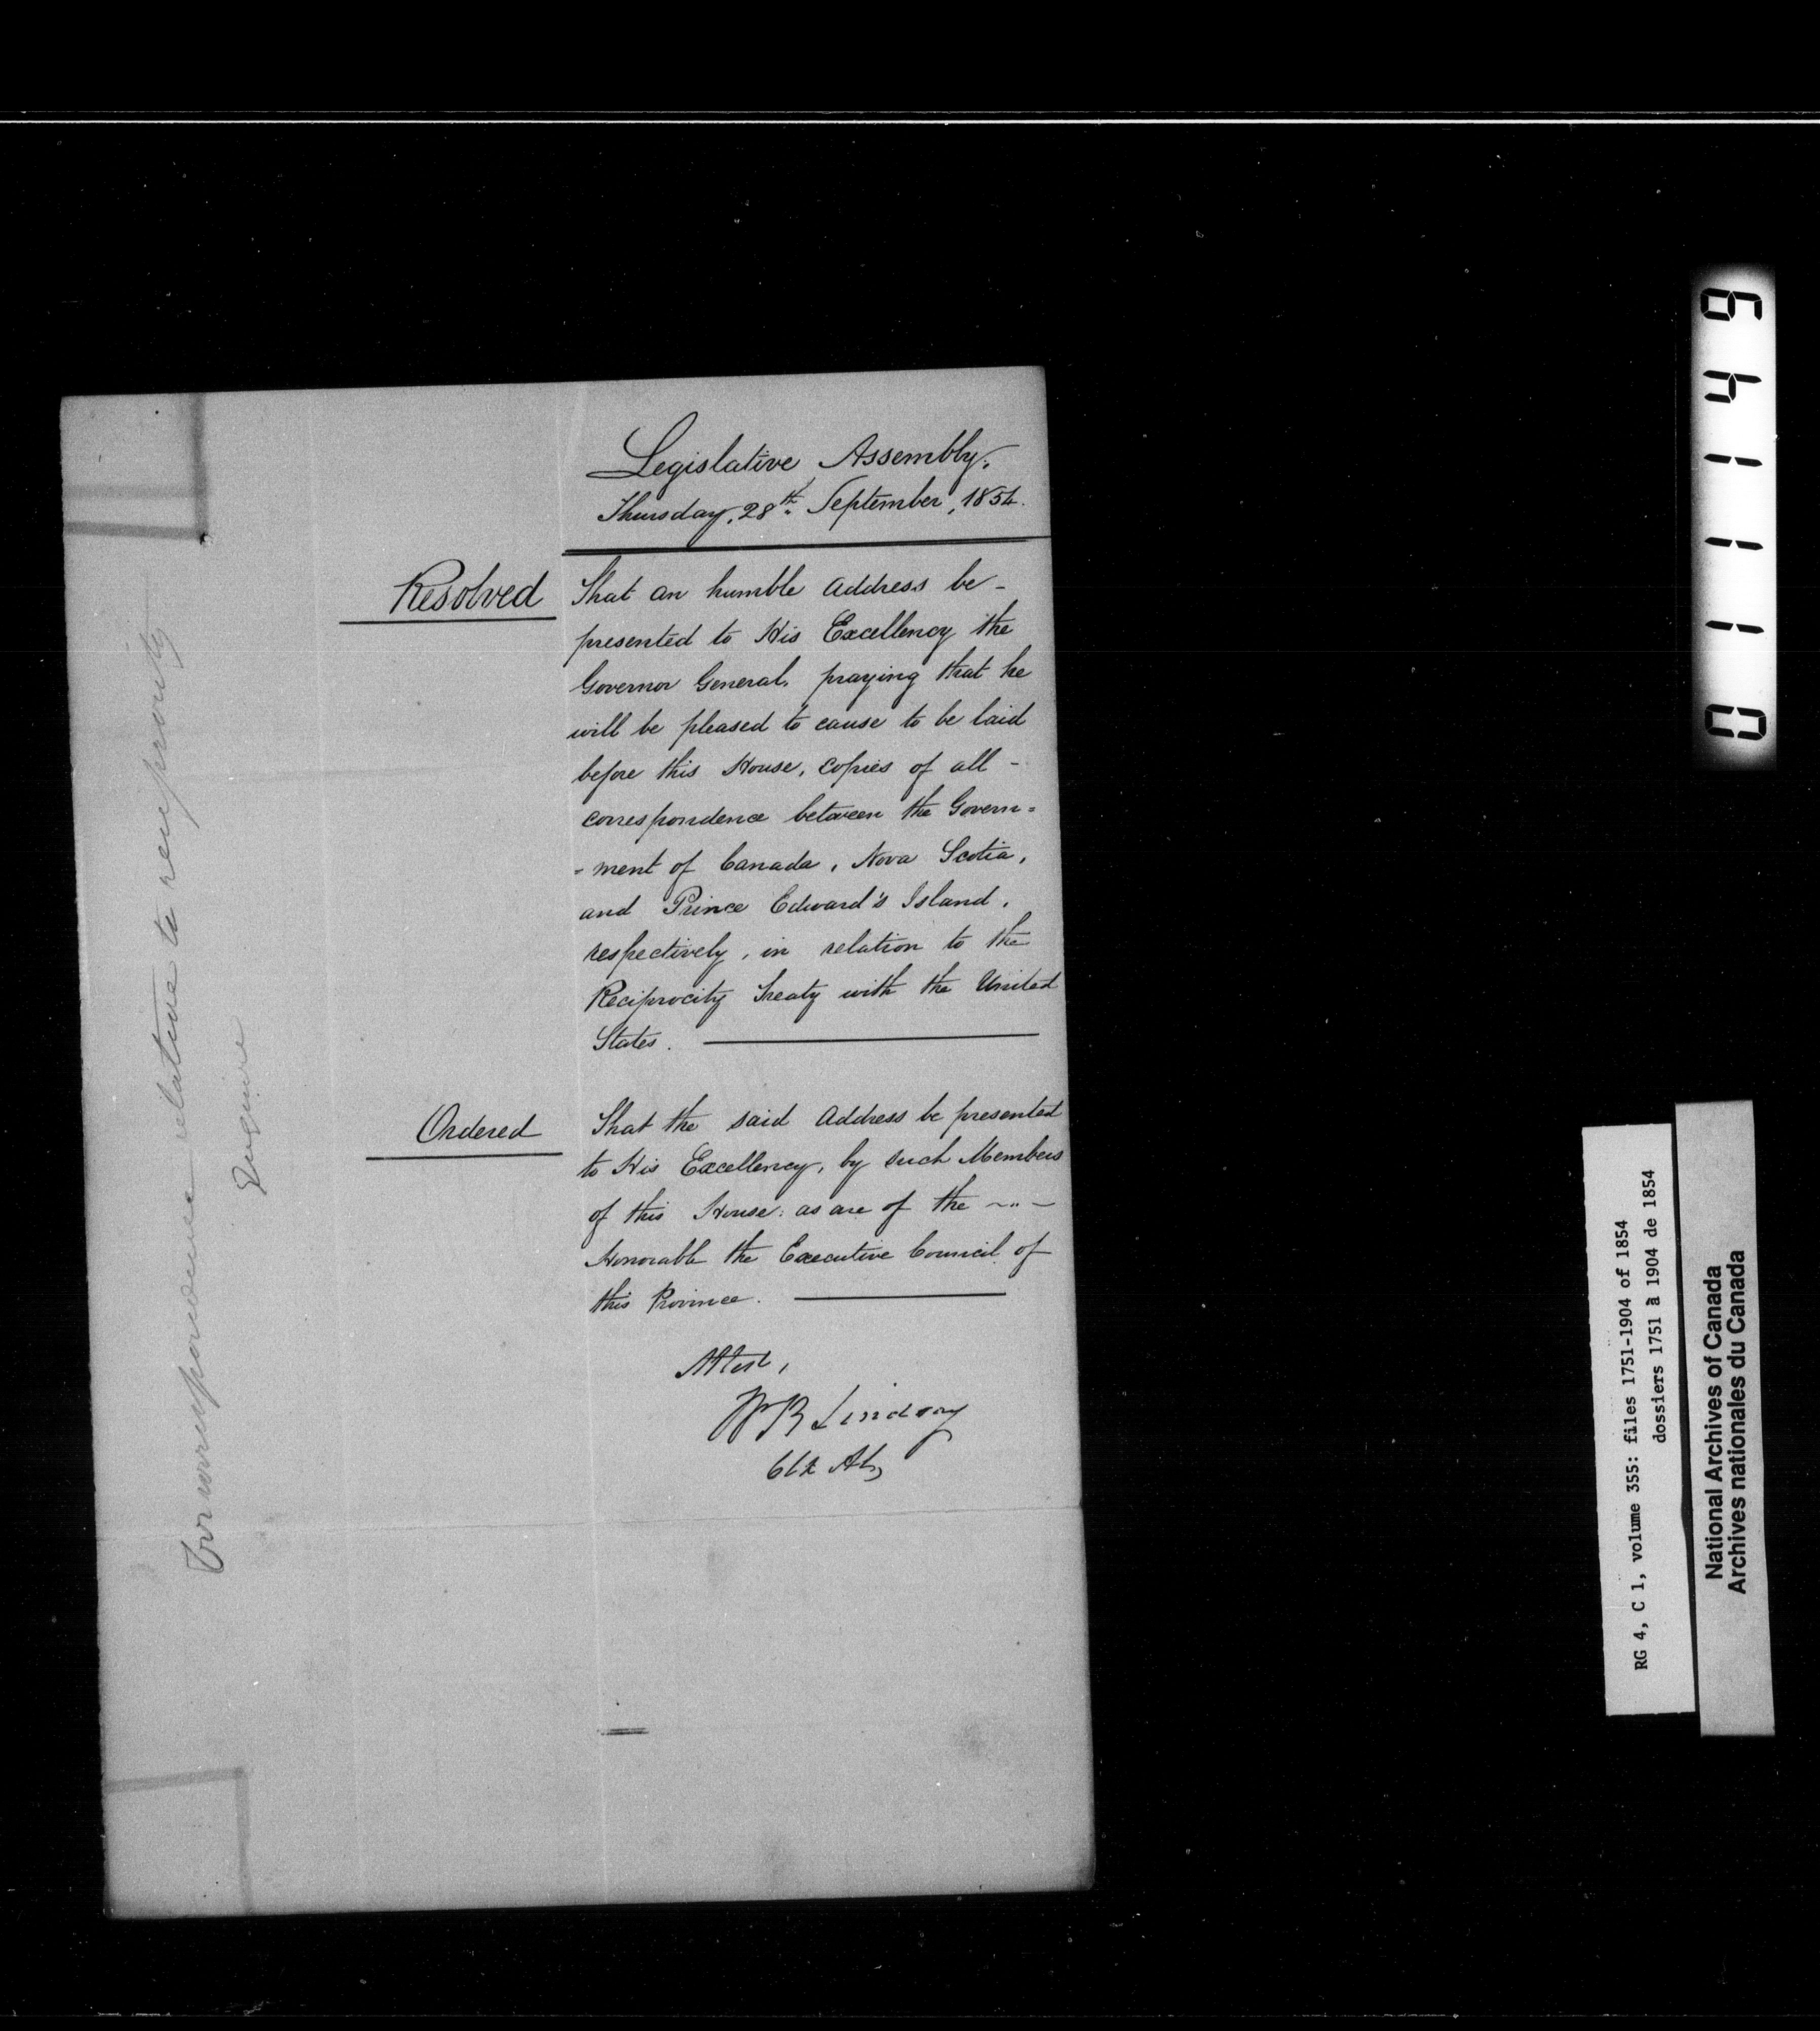 Legislative Assembly,
Thursday, 28th September, 1854.
Resolved That an humble Address be -
presented to His Excellency the
Governor General, praying that he
will be pleased to cause to be laid
before this House, copies of all -
correspondence between the Govern=
=ment of Canada, Nova Scotia,
and Prince Edward's Island,
respectively, in relation to the
Reciprocity Treaty with the United
States.
Ordered That the said Address be presented
to His Excellency, by such Members
of this House: as are of the
Honorable the Executive Council of
this Province.
Attest,
WB Lindsay
Clk Ab,
relative to reciprocity
Enquire
011149
RG 4, C 1, volume 355: files 1751-1904 of 1854
dossiers 1751 à 1904 de 1854
National Archives of Canada
Archives nationales du Canada